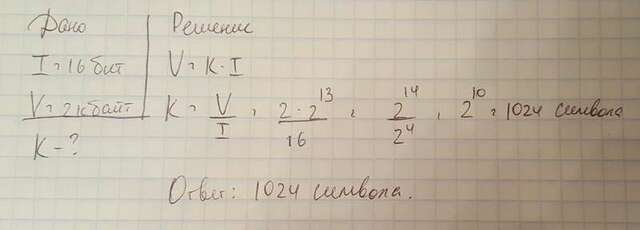 Дано
I = 16 бит
V = 2 кбайт
K - ?
Решение
V = K · I
K = V/I = 2 · 2^13 / 16 = 2^14 / 2^4 = 2^10 = 1024 символа
Ответ: 1024 символа.